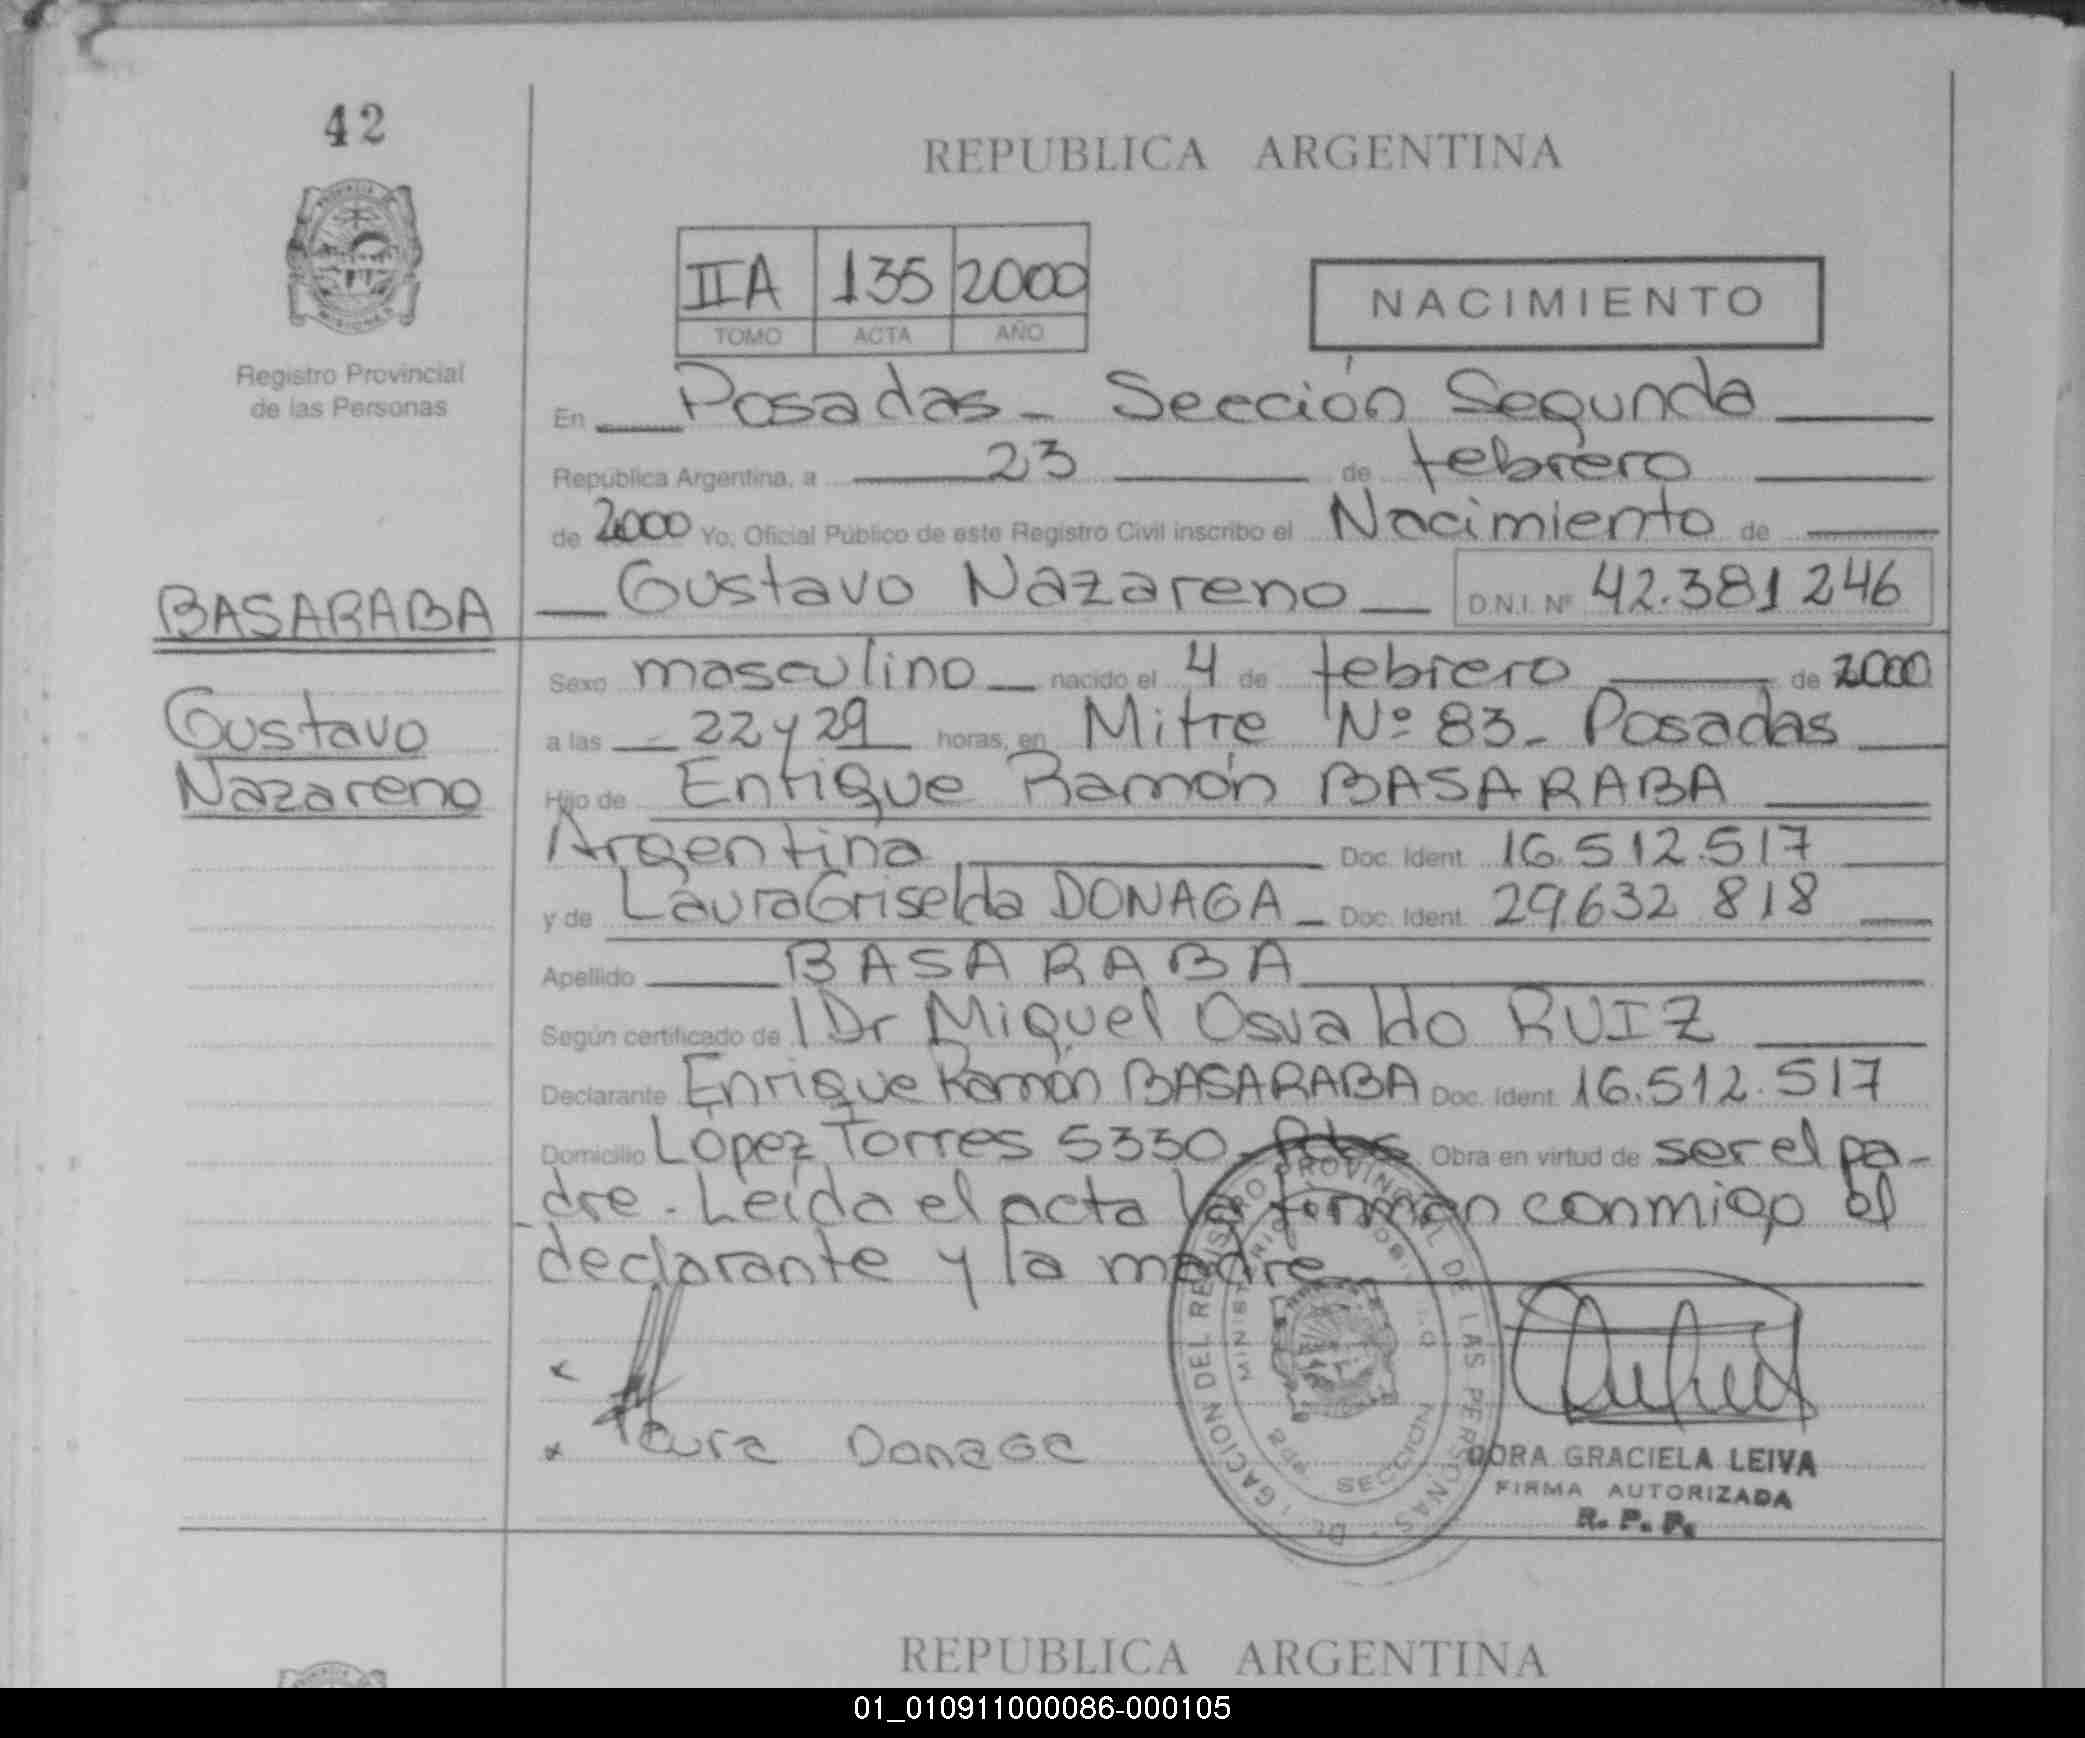 42
REPUBLICA ARGENTINA
IIA 135 2000
TOMO ACTA AÑO
NACIMIENTO
PROVINCIA
MISIONES
Registro Provincial
de las Personas
En Posadas - Sección Segunda
República Argentina, a 23 de febrero
de 2000 Yo, Oficial Público de este Registro Civil inscribo el Nacimiento de
BASARABA
Gustavo
Nazareno
Gustavo Nazareno D.N.I. Nº 42.381 246
Sexo masculino nacido el 4 de febrero de 2000
a las 22 y 29 horas, en Mitre Nº 83 - Posadas
Hijo de Enrique Ramón BASARABA
Argentina Doc. Ident. 16.512.517
y de Laura Griselda DONAGA - Doc. Ident. 29.632 818
Apellido BASARABA
Según certificado de l Dr Miguel Osvaldo RUIZ
Declarante Enrique Ramón BASARABA Doc. Ident. 16.512.517
Domicilio López Torres 5330 - Pdas Obra en virtud de ser el pa-
dre. Leída el acta la firman conmigo el
declarante y la madre
Laura Donaga
DELEGACION DEL REGISTRO PROVINCIAL DE LAS PERSONAS
SECCION 2da
DORA GRACIELA LEIVA
FIRMA AUTORIZADA
R. P. P.
REPUBLICA ARGENTINA
01_010911000086-000105